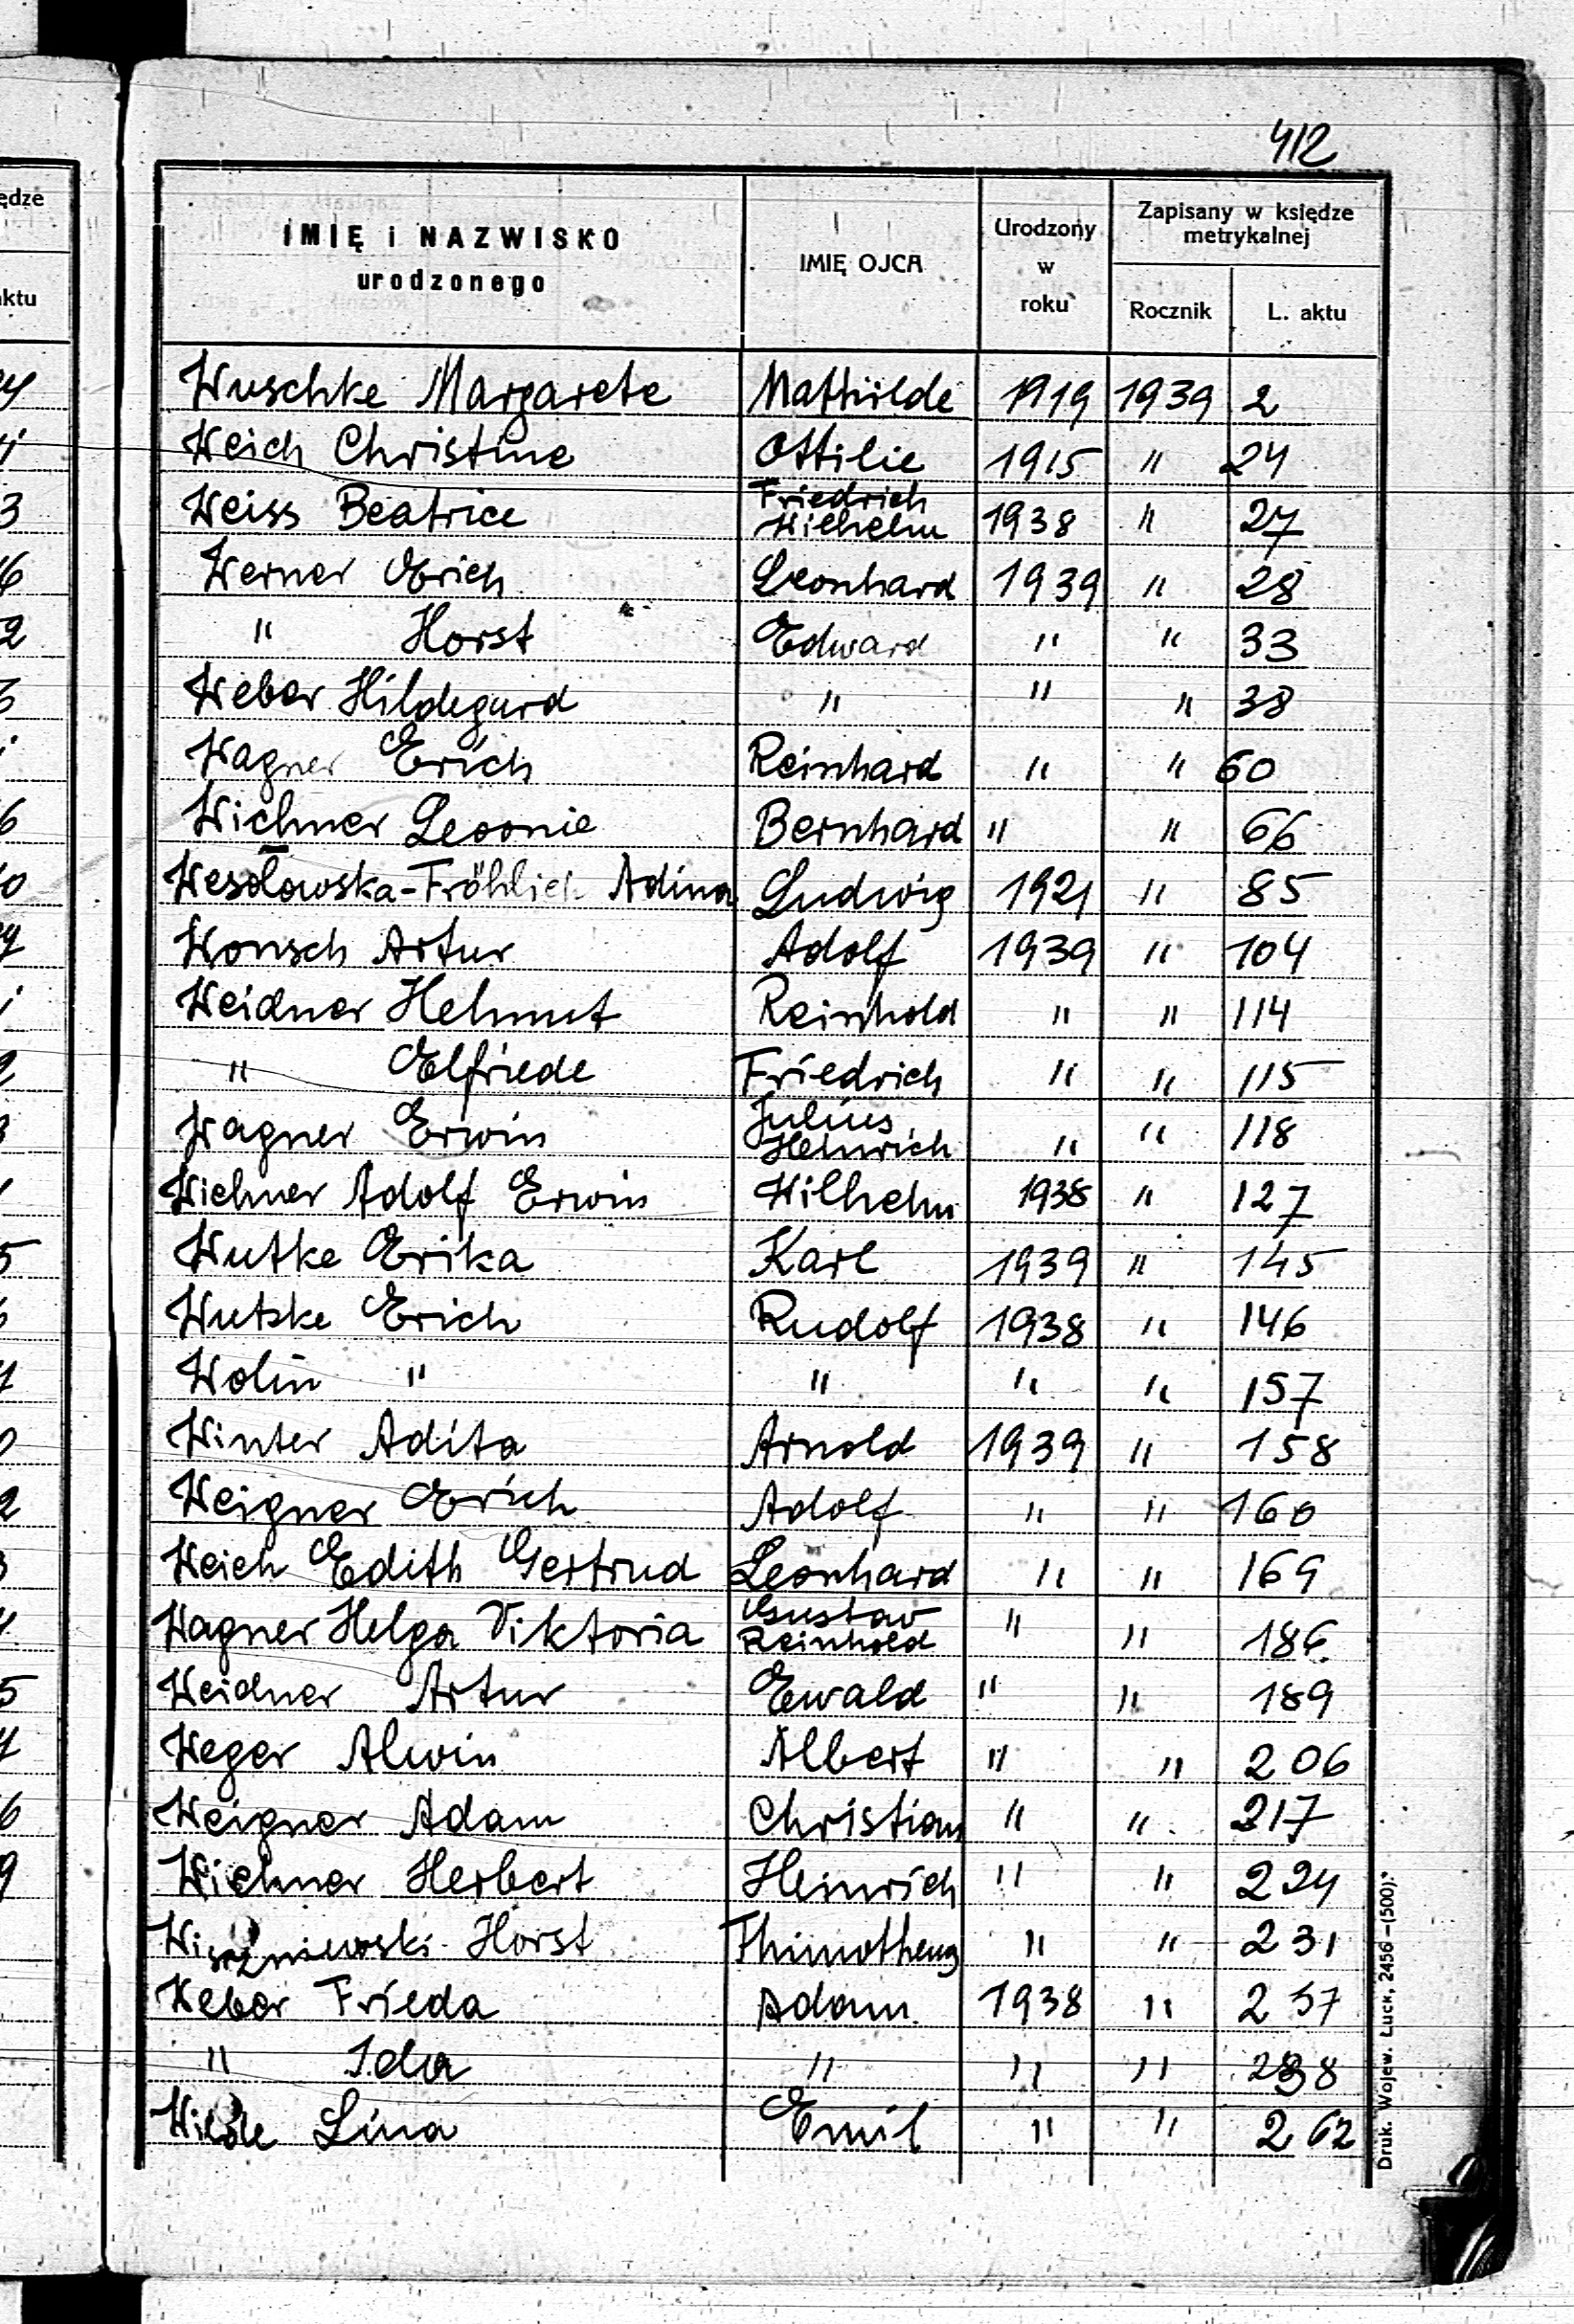 412
IMIĘ i NAZWISKO urodzonego | IMIĘ OJCA | Urodzony w roku | Zapisany w księdze metrykalnej
Rocznik | L. aktu
Wuschke Margarete | Mathilde | 1919 | 1939 | 2
Weich Christine | Ottilie | 1915 | " | 24
Weiss Beatrice | Friedrich Wilhelm | 1938 | " | 27
Werner Erich | Leonhard | 1939 | " | 28
" Horst | Edward | " | " | 33
Weber Hildegard | " | " | " | 38
Wagner Erich | Reinhard | " | " | 60
Wichner Leoonie | Bernhard | " | " | 66
Wesołowska-Fröhlich Adina | Ludwig | 1921 | " | 85
Wonsch Artur | Adolf | 1939 | " | 104
Weidner Helmut | Reinhold | " | " | 114
" Elfriede | Friedrich | " | " | 115
Wagner Erwin | Julius Heinrich | " | " | 118
Wichner Adolf Erwin | Wilhelm | 1938 | " | 127
Wutke Erika | Karl | 1939 | " | 145
Wutzke Erich | Rudolf | 1938 | " | 146
Wolin " | " | " | " | 157
Winter Adita | Arnold | 1939 | " | 158
Weigner Erich | Adolf | " | " | 160
Weich Edith Gertrud | Leonhard | " | " | 169
Wagner Helga Viktoria | Gustav Reinhold | " | " | 186
Weidner Artur | Ewald | " | " | 189
Weger Alwin | Albert | " | " | 206
Weigner Adam | Christian | " | " | 217
Wichner Herbert | Heinrich | " | " | 224
Wiszniewski Horst | Thimotheus | " | " | 231
Weber Frieda | Adam | 1938 | " | 237
" Ida | " | " | " | 238
Wilde Lina | Emil | " | " | 262
Druk. Wojew. Łuck, 2456–(500).
ędze
aktu